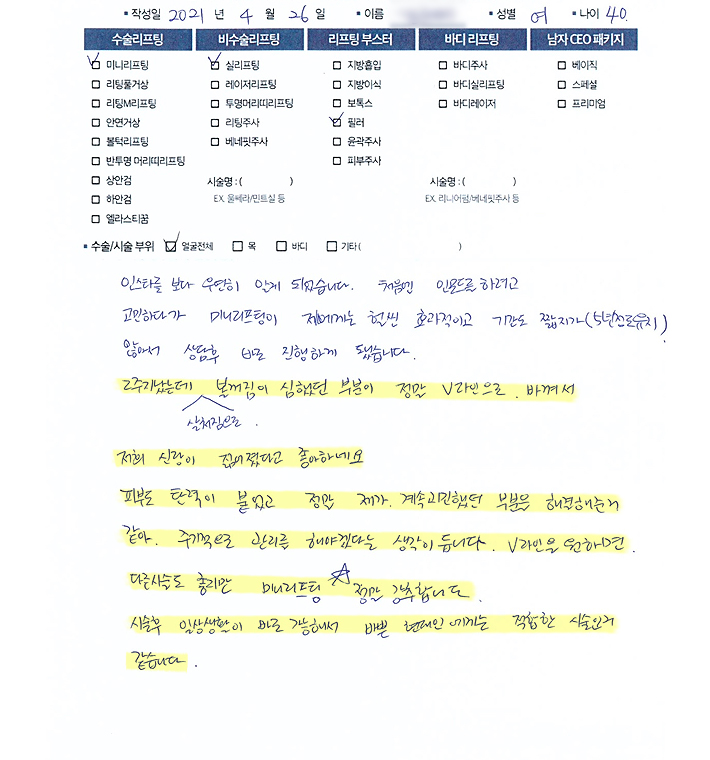 ▪ 작성일 2021 년 4 월 26 일 ▪ 이름 ▪ 성별 여 ▪ 나이 40.
수술리프팅 비수술리프팅 리프팅 부스터 바디 리프팅 남자 CEO 패키지
미니리프팅 실리프팅 지방흡입 바디주사 베이직
리팅풀거상 레이저리프팅 지방이식 바디실리프팅 스페셜
리팅M리프팅 투명머리띠리프팅 보톡스 바디레이저 프리미엄
안면거상 리팅주사 필러
볼턱리프팅 베네핏주사 윤곽주사
반투명 머리띠리프팅 피부주사
상안검 시술명 : ( ) 시술명 : ( )
하안검 EX. 울쎄라/민트실 등 EX. 리니어펌/베네핏주사 등
엘라스티꿈
▪ 수술/시술 부위 얼굴전체 목 바디 기타 ( )
인스타를 보다 우연히 알게 되었습니다. 처음엔 인모드를 하려고
고민하다가 미니리프팅이 제에게는 훨씬 효과적이고 기간도 짧지가 (5년정도유지)
않아서 상담후 바로 진행하게 됐습니다.
2주지났는데 볼꺼짐이 심했던 부분이 정말 V라인으로 바껴서
살처짐으로.
저희 신랑이 젊어졌다고 좋아하네요
피부도 탄력이 붙었고 정말 제가 계속고민했던 부분을 해결해준거
같아. 주기적으로 관리를 해야겠다는 생각이 듭니다. V라인을 원하면.
다른시술도 좋지만 미니리프팅 ☆ 정말 강추합니다.
시술후 일상생활이 바로 가능해서 바쁜 현대인에게는 적합한 시술인거
같습니다.